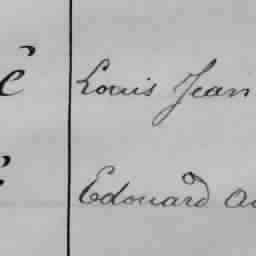 Louis Jean
Edouard